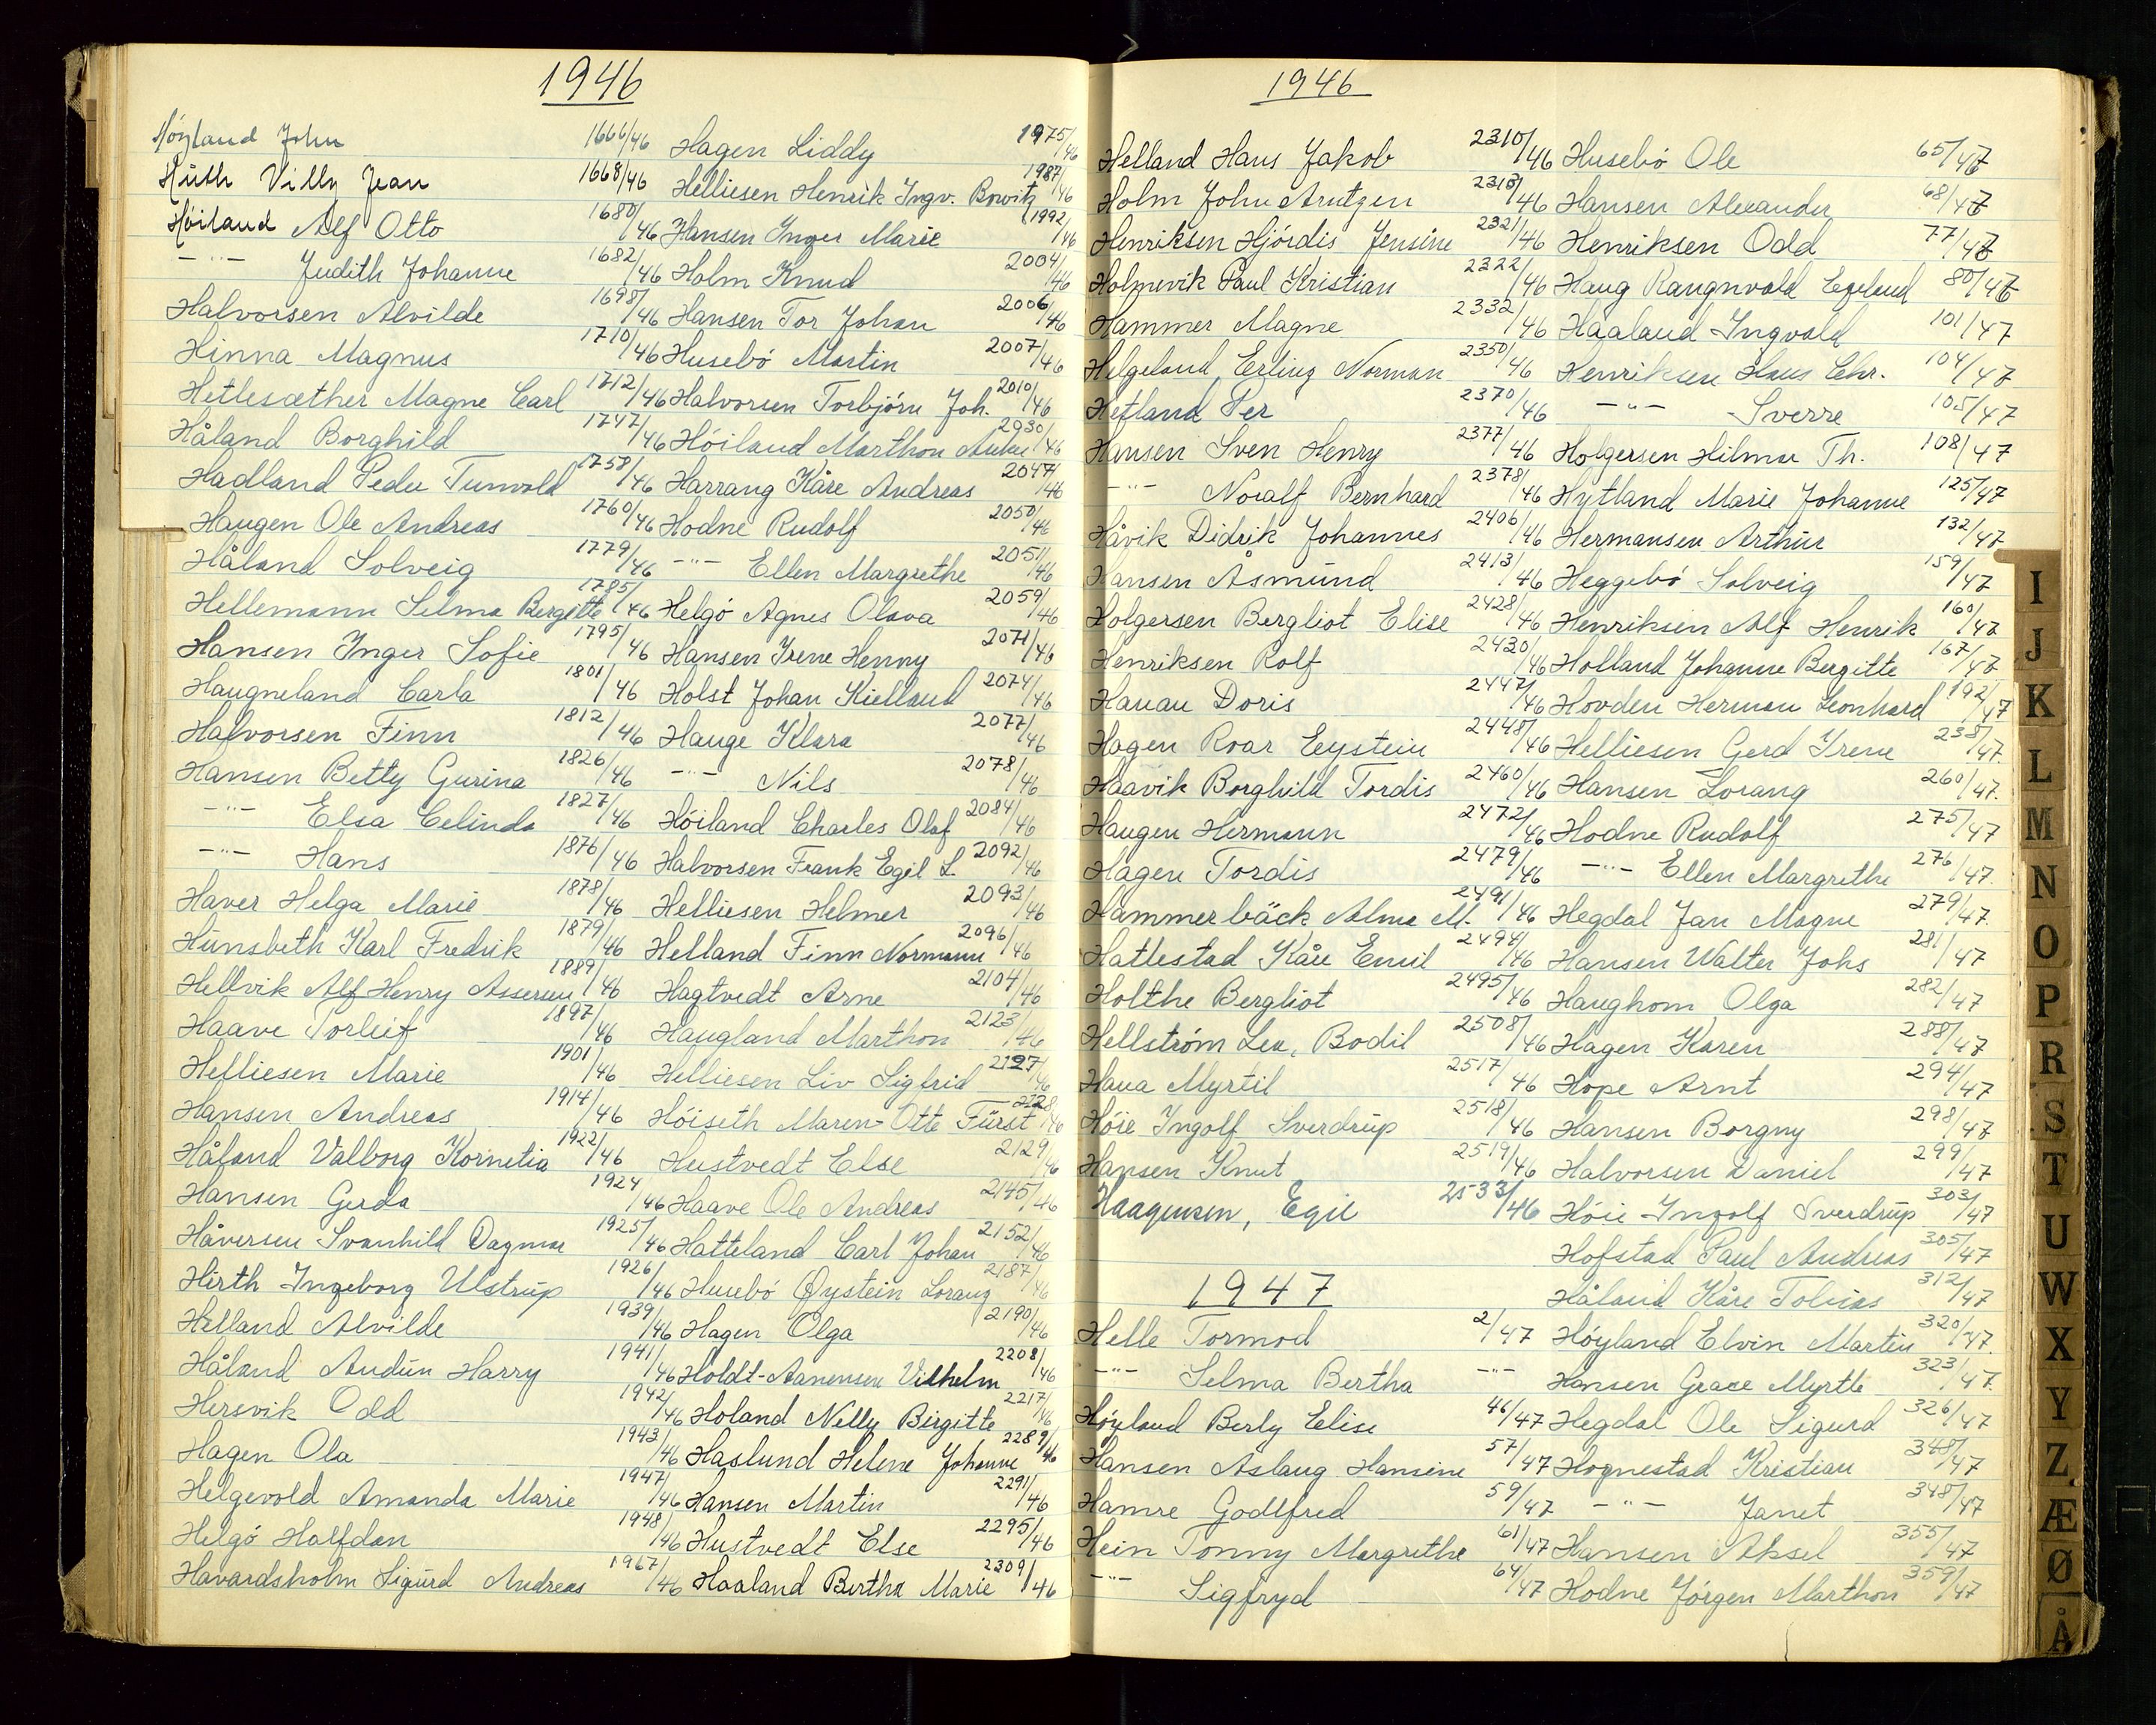 1946
Höyland John 1666/46
Hüth Villy Jean 1668/46
Höiland Alf Otto 1680/46
-"- Judith Johanne 1682/46
Halvorsen Alvilde 1698/46
Hinna Magnus 1710/46
Hetlesæther Magne Carl 1712/46
Håland Borghild 1747/46
Hadland Peder Tunvold 1758/46
Haugen Ole Andreas 1760/46
Håland Solveig 1779/46
Hellemann Selma Bergitte 1785/46
Hansen Inger Sofie 1795/46
Haugneland Carla 1801/46
Halvorsen Finn 1812/46
Hansen Betty Gurina 1826/46
-"- Elsa Celinda 1827/46
-"- Hans 1876/46
Haver Helga Marie 1878/46
Hünsbeth Karl Fredrik 1879/46
Hellvik Alf Henry Assersen 1889/46
Haave Torleif 1897/46
Helliesen Marie 1901/46
Hansen Andreas 1914/46
Håland Valborg Kornelia 1922/46
Hansen Gerda 1924/46
Håversen Svanhild Dagmar 1925/46
Hirth Ingeborg Ulstrup 1926/46
Helland Alvilde 1939/46
Håland Audün Harry 1941/46
Hersvik Odd 1942/46
Hagen Ola 1943/46
Helgevold Amanda Marie 1947/46
Helgö Halfdan 1948/46
Havardsholm Sigurd Andreas 1967/46
Hagen Liddy 1975/46
Helliesen Henrik Ingv. 1987/46
Hansen Inger Marie 1992/46
Holm Knud 2004/46
Hansen Tor Johan 2006/46
Husebö Martin 2007/46
Halvorsen Torbjörn Joh. 2010/46
Höiland Marthon 2030/46
Harrang Kåre Andreas 2047/46
Hodne Rudolf 2050/46
-"- Ellen Margrethe 2051/46
Helgö Agnes Olava 2059/46
Hansen Irene Henny 2071/46
Holst Johan Kielland 2074/46
Hauge Klara 2077/46
-"- Nils 2078/46
Höiland Charles Olaf 2084/46
Halvorsen Frank Egil L. 2092/46
Helliesen Helmer 2093/46
Helland Finn Normann 2096/46
Hagtvedt Arne 2104/46
Haugland Marthon 2123/46
Helliesen Liv Sigfrid 2127/46
Höiseth Maren-Otte Fürst 2128/46
Hustvedt Else 2129/46
Haave Ole Andreas 2145/46
Hatteland Carl Johan 2152/46
Husebö Øystein Lorang 2187/46
Hagen Olga 2190/46
Holdt-Aanensen Vilhelm 2208/46
Holand Nelly Birgitte 2217/46
Haslund Helene Johanne 2289/46
Hansen Martin 2291/46
Hustvedt Else 2295/46
Haaland Bertha Marie 2309/46
1946
Helland Hans Jakob 2310/46
Holm John Arntzen 2313/46
Henriksen Hjördis Jensine 2321/46
Holmevik Paul Kristian 2322/46
Hammer Magne 2332/46
Helgeland Erling Norman 2350/46
Hetland Per 2370/46
Hansen Sven Henry 2377/46
-"- Noralf Bernhard 2378/46
Håvik Didrik Johannes 2406/46
Hansen Åsmünd 2413/46
Holgersen Bergliot Elise 2428/46
Henriksen Rolf 2430/46
Hanau Doris 2447/46
Hagen Roar Eystein 2448/46
Haavik Borghild Tordis 2460/46
Haugen Hermann 2472/46
Hagen Tordis 2479/46
Hammerbäck Alma M. 2491/46
Hattestad Kåre Emil 2494/46
Holthe Bergliot 2495/46
Hellström Lea, Bodil 2508/46
Haua Myrtil 2517/46
Höie Ingolf Sverdrüp 2518/46
Hansen Knut 2519/46
Haagensen, Egil 2533/46
1947
Helle Tormod 2/47
-"- Selma Bertha -"-
Höyland Berly Elise 46/47
Hansen Aslaug Hansine 57/47
Hamre Godtfred 59/47
Hein Tonny Margrethe 61/47
-"- Sigfryd 64/47
Husebö Ole 65/47
Hansen Alexander 68/47
Henriksen Odd 77/47
Haug Raugnvald Egeland 80/47
Haaland Ingvald 101/47
Henriksen Hans Chr. 104/47
-"- Sverre 105/47
Holgersen Hilmar Th. 108/47
Hytland Marie Johanne 125/47
Hermansen Arthür 132/47
Heggebö Solveig 159/47
Henriksen Alf Henrik 160/47
Holland Johanne Bergitte 167/47
Hovden Herman Leonhard 192/47
Helliesen Gerd Irene 238/47
Hansen Lorang 260/47.
Hodne Rudolf 275/47
-"- Ellen Margrethe 276/47.
Hegdal Jan Magne 279/47.
Hansen Walter Johs 281/47
Haughom Olga 282/47
Hagen Karen 288/47
Hope Arnt 294/47
Hansen Borgny 298/47
Halvorsen Daniel 299/47
Höie Ingolf Sverdrüp 303/47
Hofstad Paul Andreas 305/47
Håland Kåre Tobias 312/47
Höyland Elvin Martin 320/47.
Hansen Grace Myrtle 323/47.
Hegdal Ole Sigurd 326/47
Hognestad Kristian 348/47
-"- Janet 348/47
Hansen Aksel 355/47
Hodne Jörgen Marthon 359/47
I
J
K
L
M
N
O
P
R
S
T
U
W
X
Y
Z.
Æ
Ø
Å